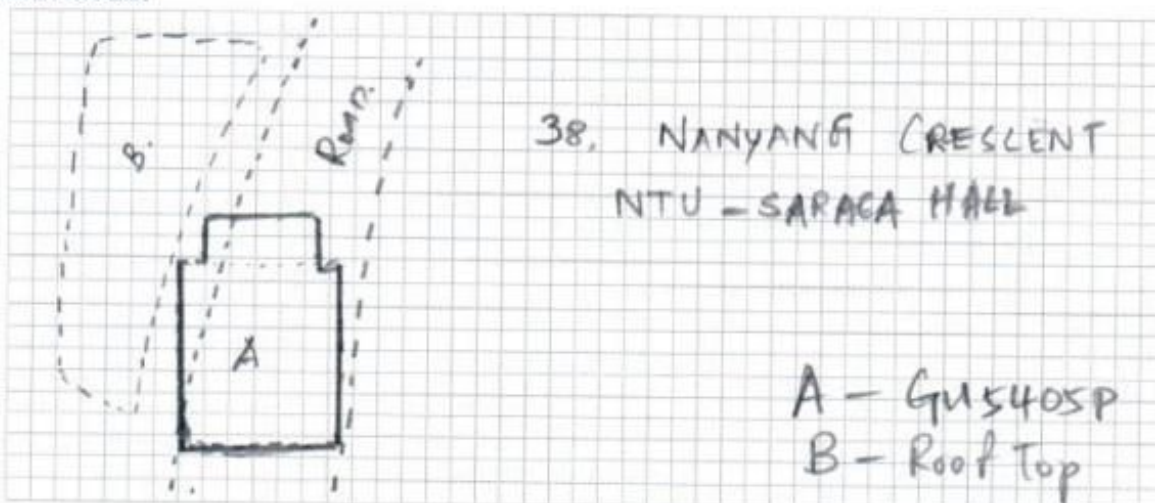 B.
ROAD.
38, NANYANG CRESCENT
NTU - SARACA HALL
A
A - GU5405P
B - Roof Top